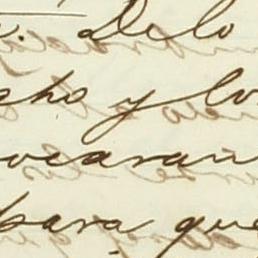 . Delo
cho y lo
ocaran
para que